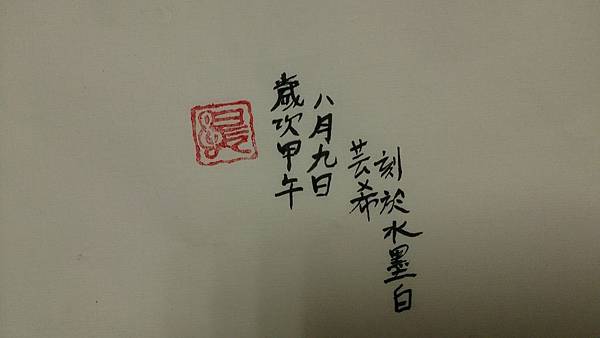 刻於水墨白
芸希
八月九日
歲次甲午